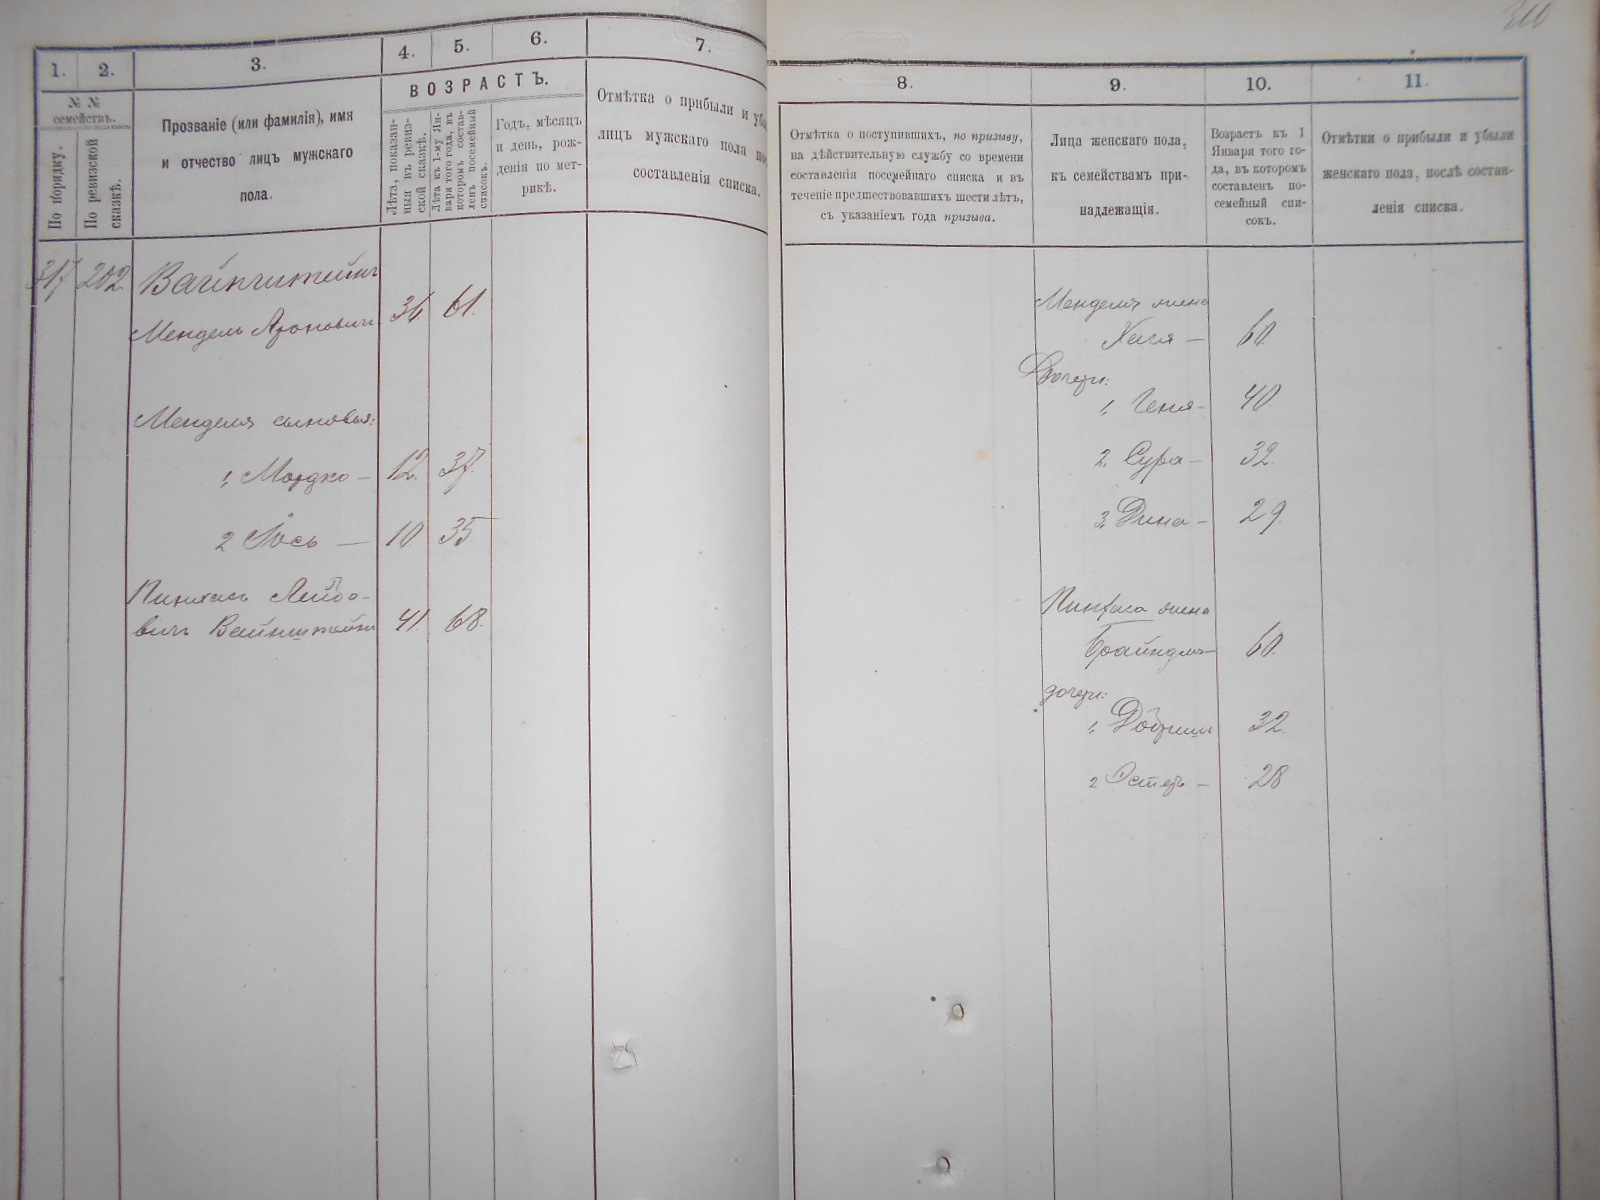 1.
2.
3.
4.
5.
6.
7.
№ №
семействъ.
По порядку.
По ревизской
сказкѣ.
Прозваніе (или фамилія), имя
и отчество лицъ мужскаго
пола.
ВОЗРАСТЪ.
Лѣта, показан-
ныя въ ревиз-
ской сказкѣ.
Лѣта къ 1-му Ян-
варя того года, въ
которомъ состав-
ленъ посемейный
списокъ.
Годъ, мѣсяцъ
и день, рож-
денія по мет-
рикѣ.
Отмѣтка о прибыли и убы
лицъ мужскаго пола по
составленія списка.
317 202 Вайнштейнъ
Мендель Ароновичъ 36 61.
Менделя сыновья:
1, Мордко — 12. 37.
2 Іось — 10. 35
Пинхасъ Лейбо-
вичъ Вайнштейнъ 41. 68.
8.
9.
10.
11.
Отмѣтка о поступившихъ, по призыву,
на дѣйствительную службу со времени
составленія посемейнаго списка и въ
теченіе предшествовавшихъ шести лѣтъ,
съ указаніемъ года призыва.
Лица женскаго пола,
къ семействамъ при-
надлежащія.
Возрастъ къ 1
Января того го-
да, въ которомъ
составленъ по-
семейный спи-
сокъ.
Отмѣтки о прибыли и убыли
женскаго пола, послѣ состав-
ленія списка.
Менделя жена
Хася — 60.
Дочери:
1, Геня — 40.
2, Сура — 32.
3, Дина — 29.
Пинхаса жена
Брайндля — 60.
дочери:
1, Добриш 32.
2 Эстеръ — 28